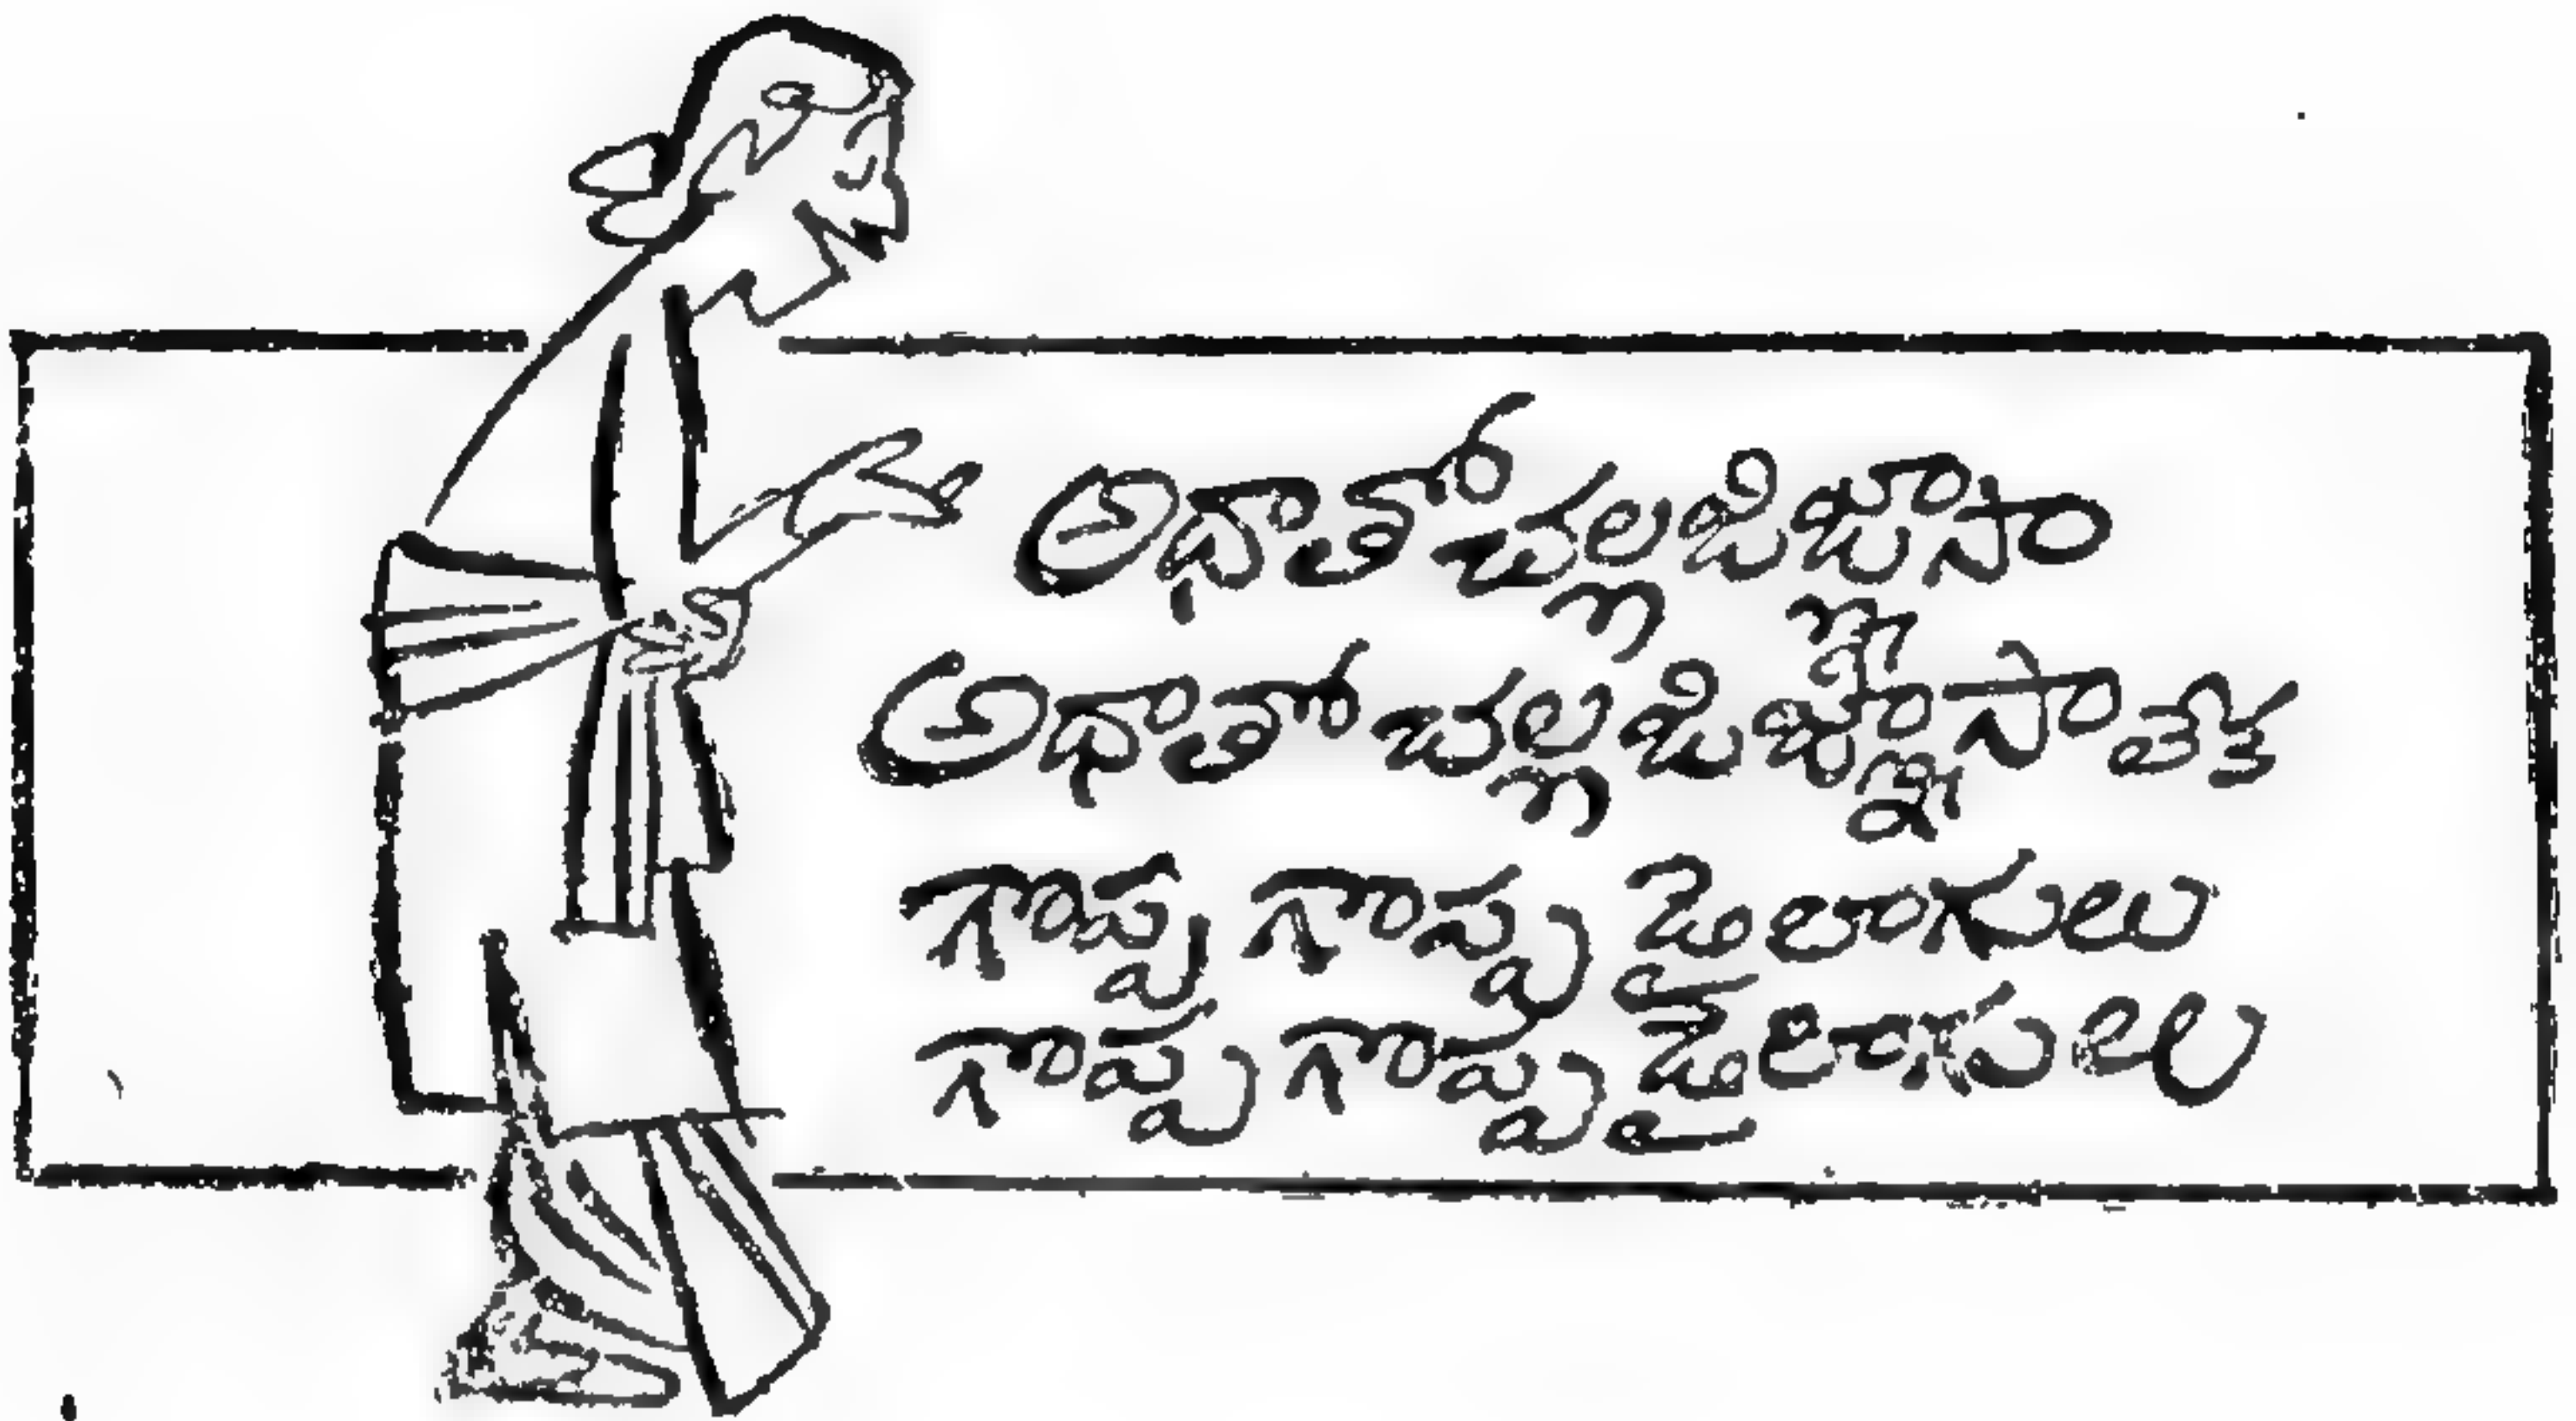 అధాతో చల్ల జిజ్ఞాసాం
అధాతో చల్ల జిజ్ఞాసాం తేత
గొప్ప గొప్ప డైలాగులు
గొప్ప గొప్ప డైలాగులు